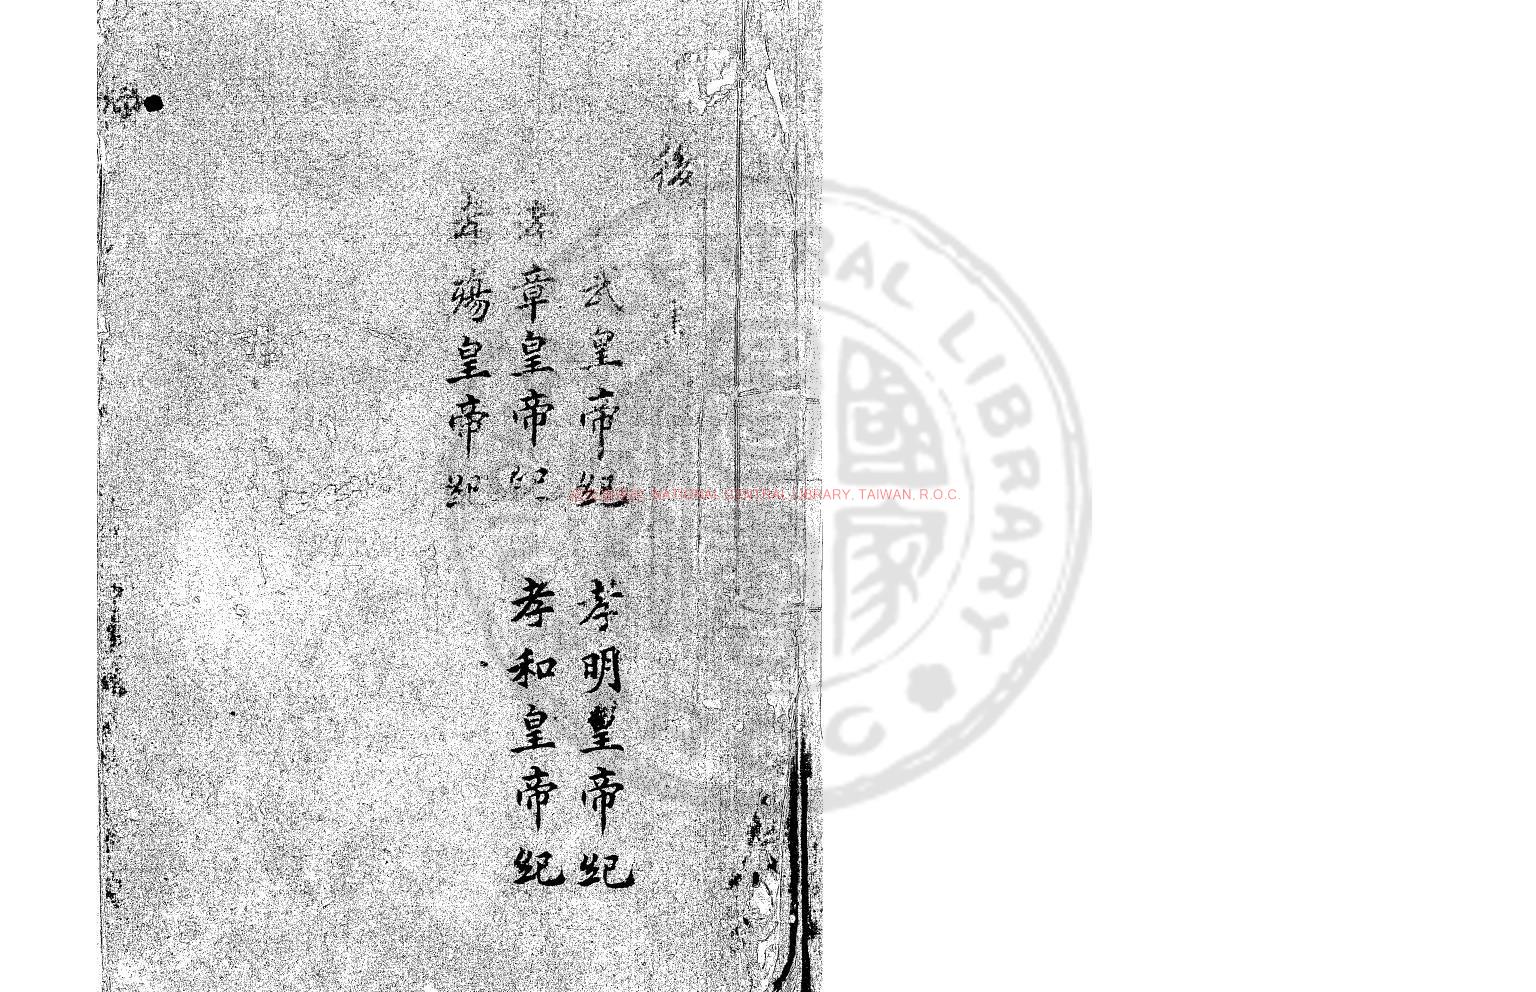 後
武皇帝紀 孝明皇帝紀
孝章皇帝紀 孝和皇帝紀
孝殤皇帝紀
NATIONAL CENTRAL LIBRARY, TAIWAN, R.O.C.
CENTRAL LIBRARY
國家